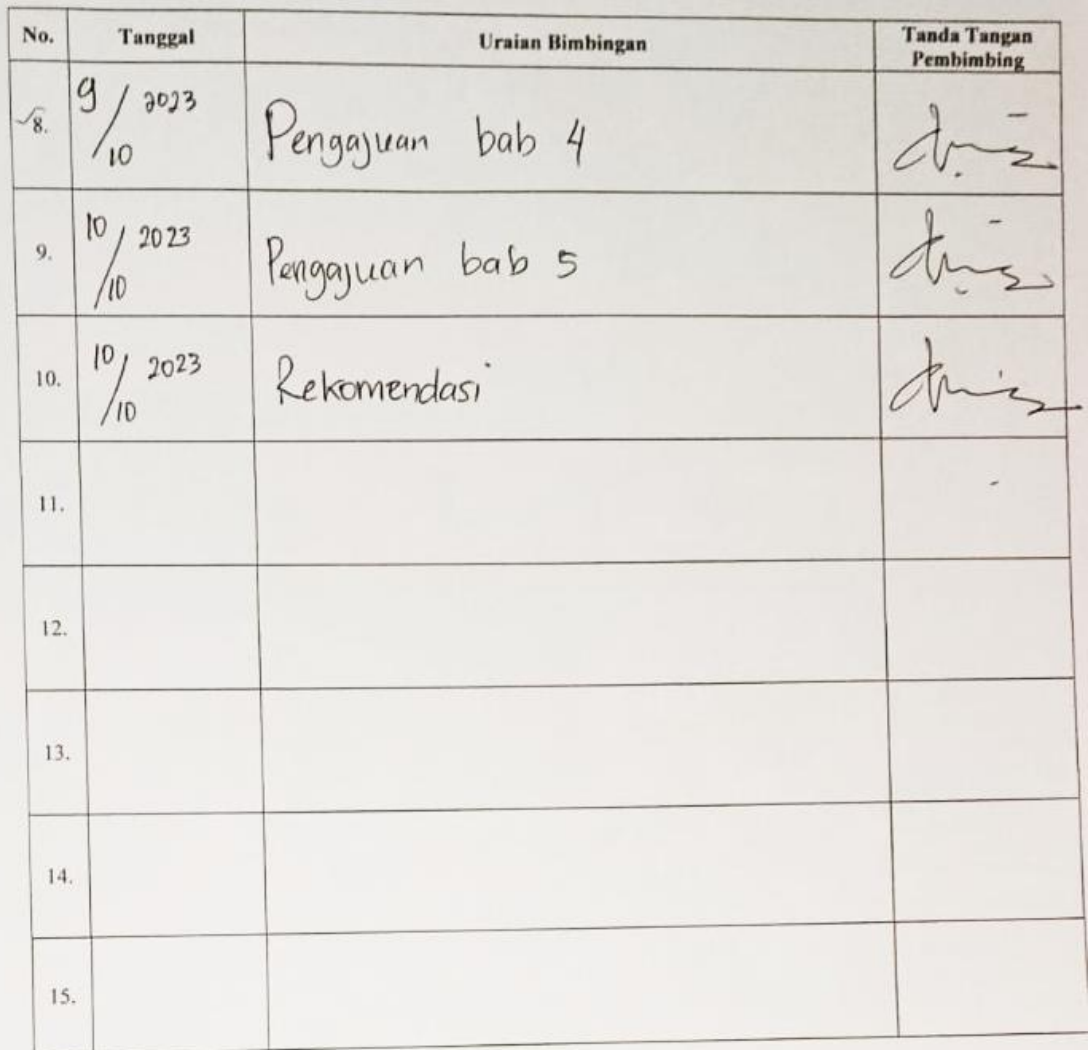 No. Tanggal Uraian Bimbingan Tanda Tangan
Pembimbing
8. 9/10 2023 Pengajuan bab 4
9. 10/10 2023 Pengajuan bab 5
10. 10/10 2023 Rekomendasi
11.
12.
13.
14.
15.